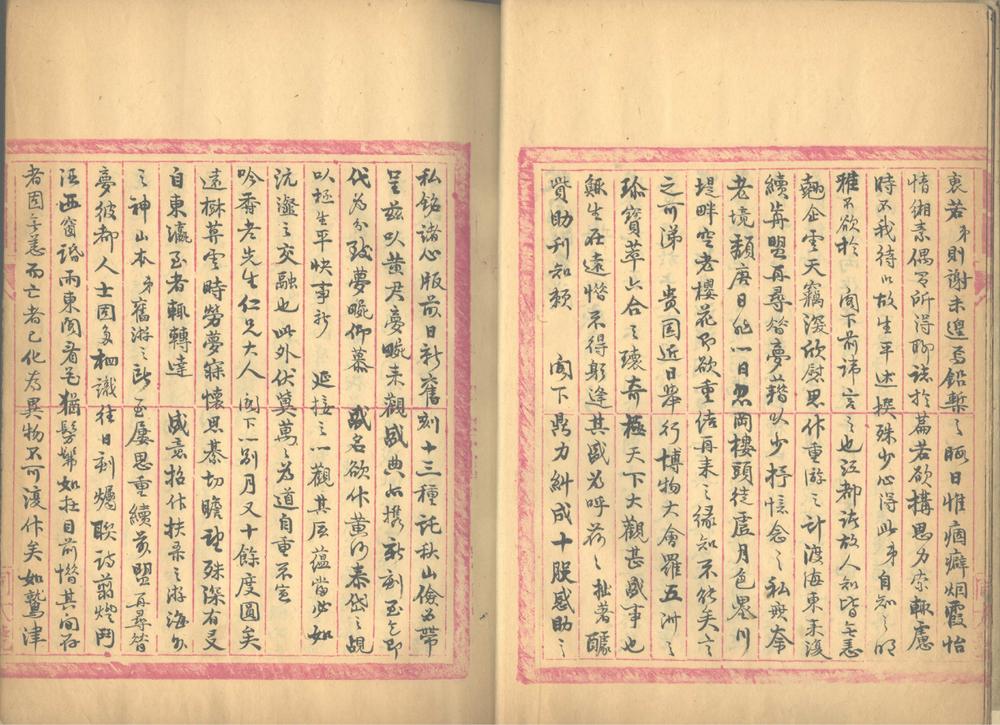 裏若弟則謝未遑爲鉛槧之晦日惟痼癖烟霞怡
情緗素偶有所得聊誌於篇若欲構思力索輒慮
時不我待以故生平述撰殊少心得此弟自知之明
雅不欲於 閣下前諱言之也江都諸故人知皆無恙
翹企雲天竊深欣慰思作重游之計渡海東來復
續前盟再尋昔夢藉以少抒憶念之私無奈
老境頽唐日甚一日忍岡樓頭徒虛月色墨川
堤畔空老櫻花即欲重結再來之緣知不能矣言
之可涕 貴國近日舉行博物大會羅五洲之
珍寶萃六合之瓌奇極天下大觀甚盛事也
鯫生在遠惜不得躬逢其盛爲呼荷荷拙著釀
貲助刊知賴 閣下鼎力糾成十股感助之
私銘諸心版前日新舊刻十三種託秋山儉爲帶
呈茲以黄君夢畹來觀盛典附携新刻至乞即
代爲分致夢畹仰慕 盛名欲作黄河泰岱之覩
以極生平快事祈 延接之一觀其底蘊當必如
沆瀣之交融也此外伏冀萬萬爲道自重不宣
吟香老先生仁兄大人 閣下一別月又十餘度圓矣
遠樹莽雲時勞夢寐懷思綦切瞻望殊深有友
自東瀛至者輒轉達 盛意招作扶桑之游海外
之神山本弟舊游之所至屢思重續前盟再尋昔
夢彼都人士固多相識往日刻燭聯詩翦燈鬥
酒西窗話雨東閣看花猶髣髴如在目前惜其間存
者固無恙而亡者已化爲異物不可復作矣如鷲津